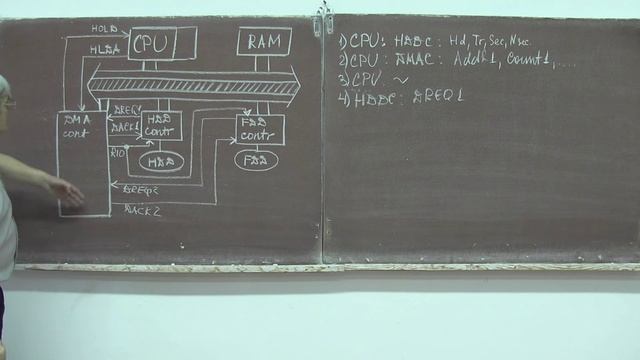 HOLD
HLDA
CPU
RAM
DMA
cont
DREQ1
DACK1
HDD
contr
HDD
FDD
contr
FDD
DREQ2
DACK2
1) CPU: HDDC: Hd, Tr, Sec, Nsec
2) CPU: DMAC: Addr1, Count1, ...
3) CPU ~
4) HDDC: DREQ1